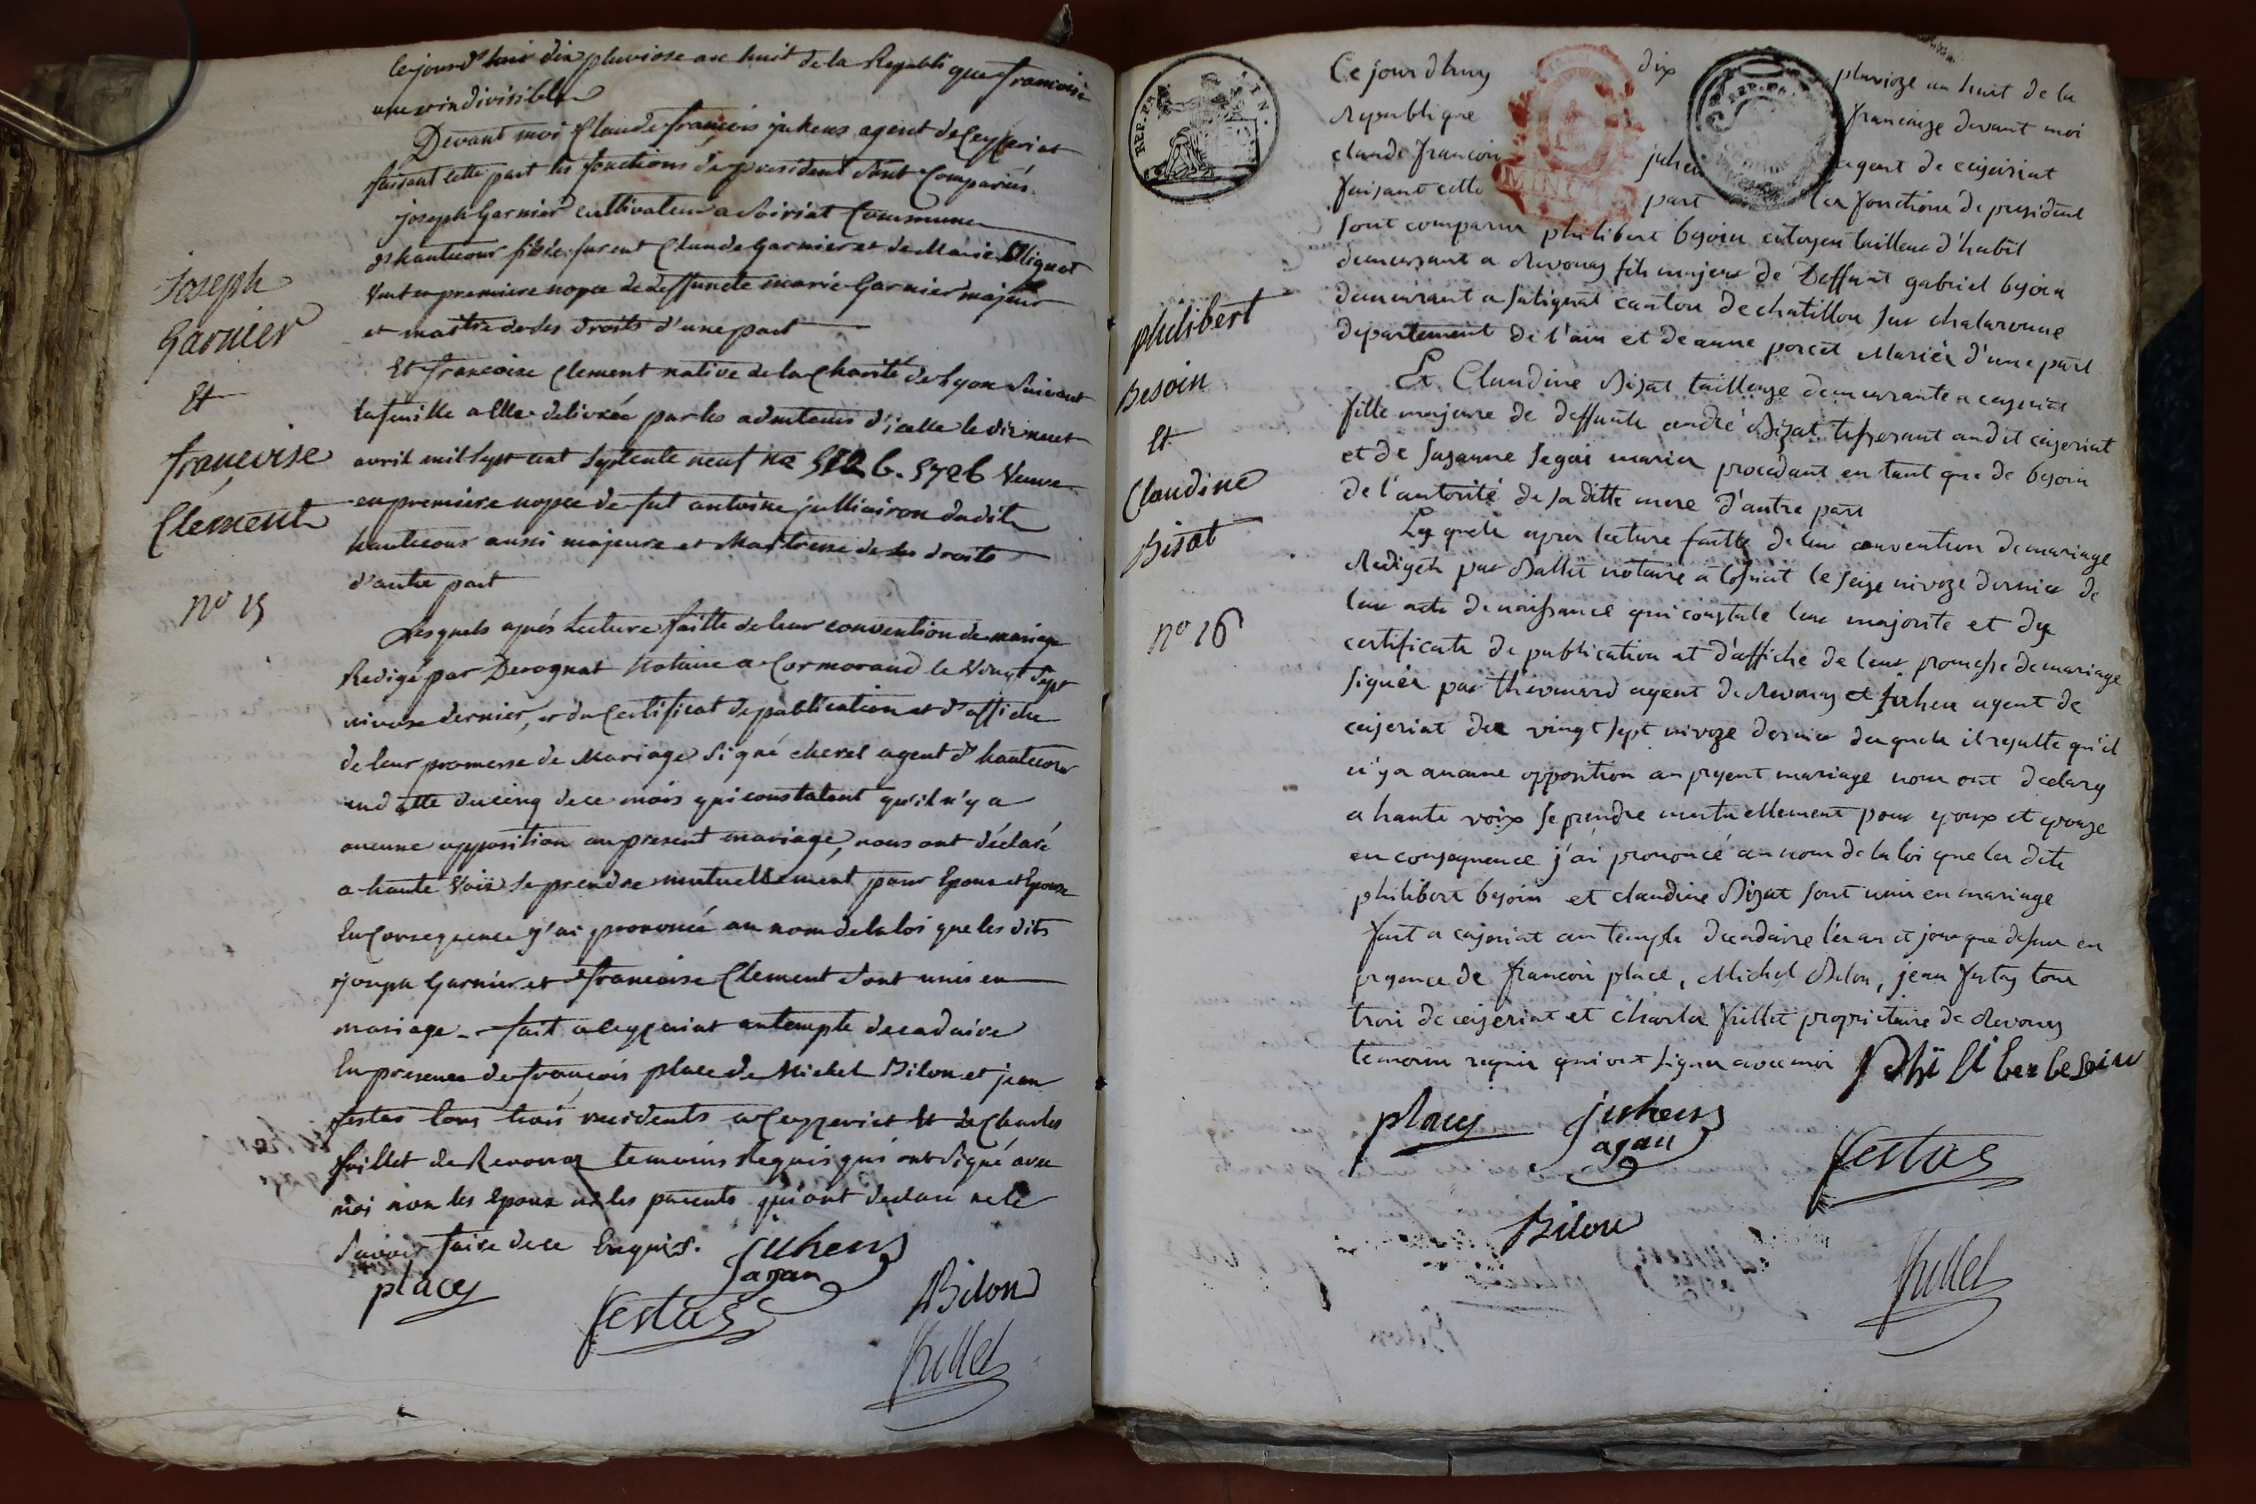 Cejourd'hui dix pluviose an huit de la Republique francoise
une et indivisible
Devant moi Claude françois juhens agent de Ceyzeriat
faisant cette part les fonctions de president sont Comparus.
joseph Garnier cultivateur a Soiriat Commune
d'hautecour fils de furent Claude Garnier et de Marie
veuf en premiere nopce de deffuncte marie Garnier majeur
et maitre de ses droits d'une part
Et francoise Clement native de la Charité de Lyon suivant
la feuille a Elle delivrée par les adm d'icelle le dix neuf
avril mil sept cent septente neuf no 572 b. 5726 veuve
en premiere nopce de fut antoine julliairon dudit
hautecour aussi majeure et Maitresse de ses droits
d'autre part
Lesquels aprés Lecture faitte de leur convention de mariage
Redigé par Derognat Notaire a Cormorand le Vingt sept
nivose dernier, et du Certificat de publication et d'affiche
de leur promesse de Mariage signé chevel agent d'hautecour
en datte du cinq de ce mois qui constatent qu'il n'y a
aucune opposition au present mariage, nous ont déclaré
a haute voix se prendre mutuellement pour Epoux et Epouse
En Consequence j'ai prononcé au nom de la loi que les dits
joseph Garnier et francoise Clement sont unis en
mariage - fait a Ceyzeriat au temple decadaire
En presence de françois place de Michel Bilon et jean
festas tous trois residents a Ceyzeriat et de Charles
fuillet de Revonas temoins Requis qui ont signé avec
moi non les Epoux ni les parents qui ont declaré ne le
savoir faire de ce Enquis.
juhens
agan
place
festas
Bilon
fuillet
Joseph
Garnier
Et
françoise
Clément
no 15
REP. FRA
Ce jourdhuy dix pluvioze an huit de la
Republique francaize devant moi
claude francoi juhen agent de ceyseriat
faisant cette part les fonctions de president
MINU
sont comparus philibert besoin citoyen tailleur d'habit
demeurant a Revonas fils majeur de Deffunt gabriel besoin
demeurant a Saligniat canton de chatillon sur chalaronne
departement de l'ain et de anne porcet Mariés d'une part
Et Claudine Bizat tailleuze demeurante a ceyseriat
fille majeure de deffunte andré Bizat tisserant audit ceyseriat
et de Suzanne segai mariés procedant en tant que de besoin
de l'autorité de sa ditte mere d'autre part
Lesquels apres lecture faitte de leur convention de mariage
Redigés par Ballet notaire a tossiat le seize nivoze dernier de
leur acte de naissance qui constate leur majorité et des
certificats de publication et d'affiche de leur promesse de mariage
signés par thevenard agent de Revonas et juhen agent de
ceyseriat du vingt sept nivoze dernier desquels il resulte qu'il
n'y a aucune opposition au present mariage nous ont declaré
a haute voix se prendre mutuellement pour epoux et epouze
en consequence j'ai prononcé au nom de la loi que les dits
philibert besoin et claudine Bizat sont unis en mariage
fait a ceyseriat au temple decadaire les an et jour que dessus en
presence de francoi place, Michel Bilon, jean festas tous
trois de ceyseriat et charles fuillet proprietaire de Revonas
temoins requis qui ont signer avec moi
philiber besoin
place
juhens
agan
festas
Bilon
fuillet
philibert
Besoin
Et
Claudine
Bisat
no 16